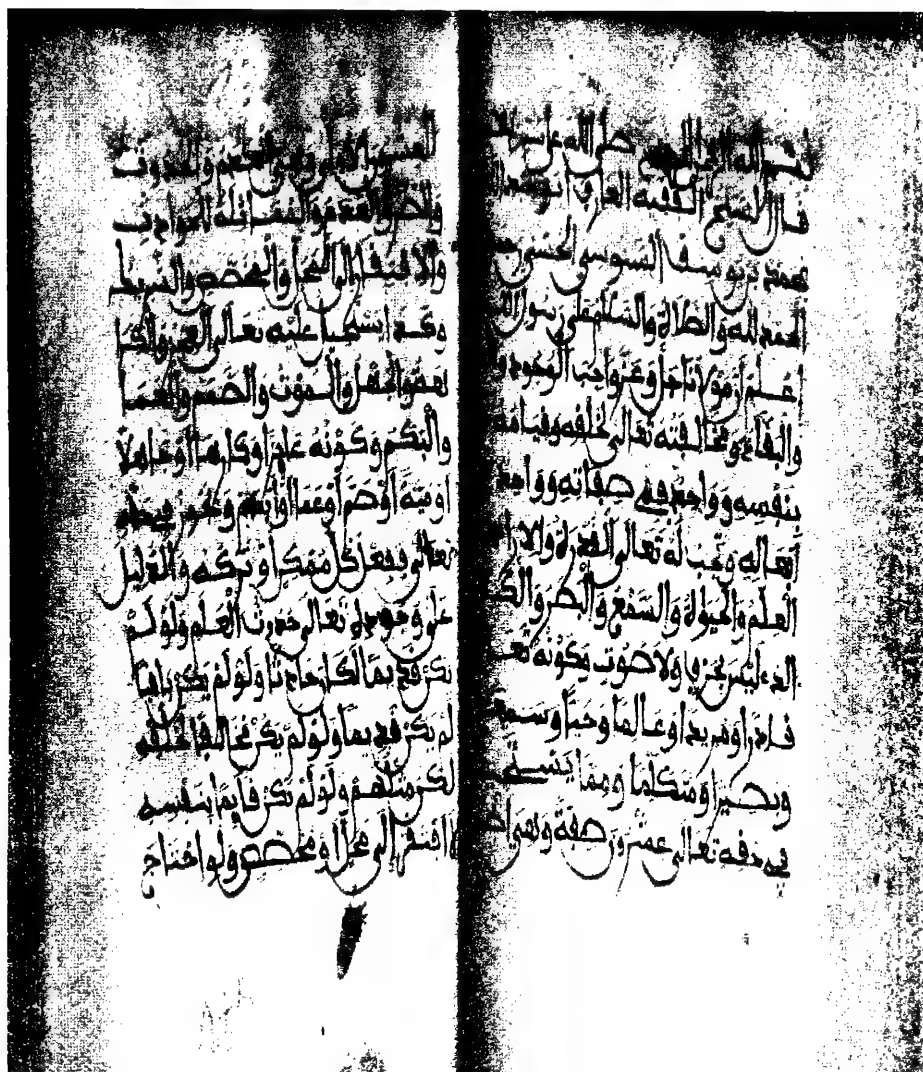 بسم الله الرحمن الرحيم صلى الله على
قال الشيخ الفقيه العارف
محمد بن يوسف السنوسي الحسني
الحمد لله والصلاة والسلام على رسول الله
اعلم أن مولانا جل وعز واجب الوجود و
والبقاء ومخالفته تعالى لخلقه وقيامه
بنفسه وواحد في صفاته وواحد
أفعاله وتجب له تعالى القدرة والارا
العلم والحيوة والسمع والبصر والك
الذي ليس بحرف ولا صوت وكونه تع
قادرا ومريدا وعالما وحيا وسم
وبصيرا ومتكلما ومما يستحيل
في حقه تعالى عشرون صفة وهي
العشرون الأولى وهي العدم والحدوث
والعدم والمماثلة للحوادث
والافتقار إلى المحل والمخصص والشريك
وكذا يستحيل عليه تعالى العجز والكرا
هة والجهل والموت والصمم والعما
والبكم وكونه عاجزا وكارها أو جاهلا
أو ميتا أو أصم أو أعما أو أبكم ويجوز في حقه
تعالى وفعل كل ممكن أو تركه والدليل
على وجوده تعالى حدوث العالم ولو لم
يكن قديما لكان حادثا ولو لم يكن باقيا
لم يكن قديما ولو لم يكن مخالفا لخلقه
لكن مثلهم ولو لم يكن قايما بنفسه
لافتقر إلى محل أو مخصص ولو احتاج